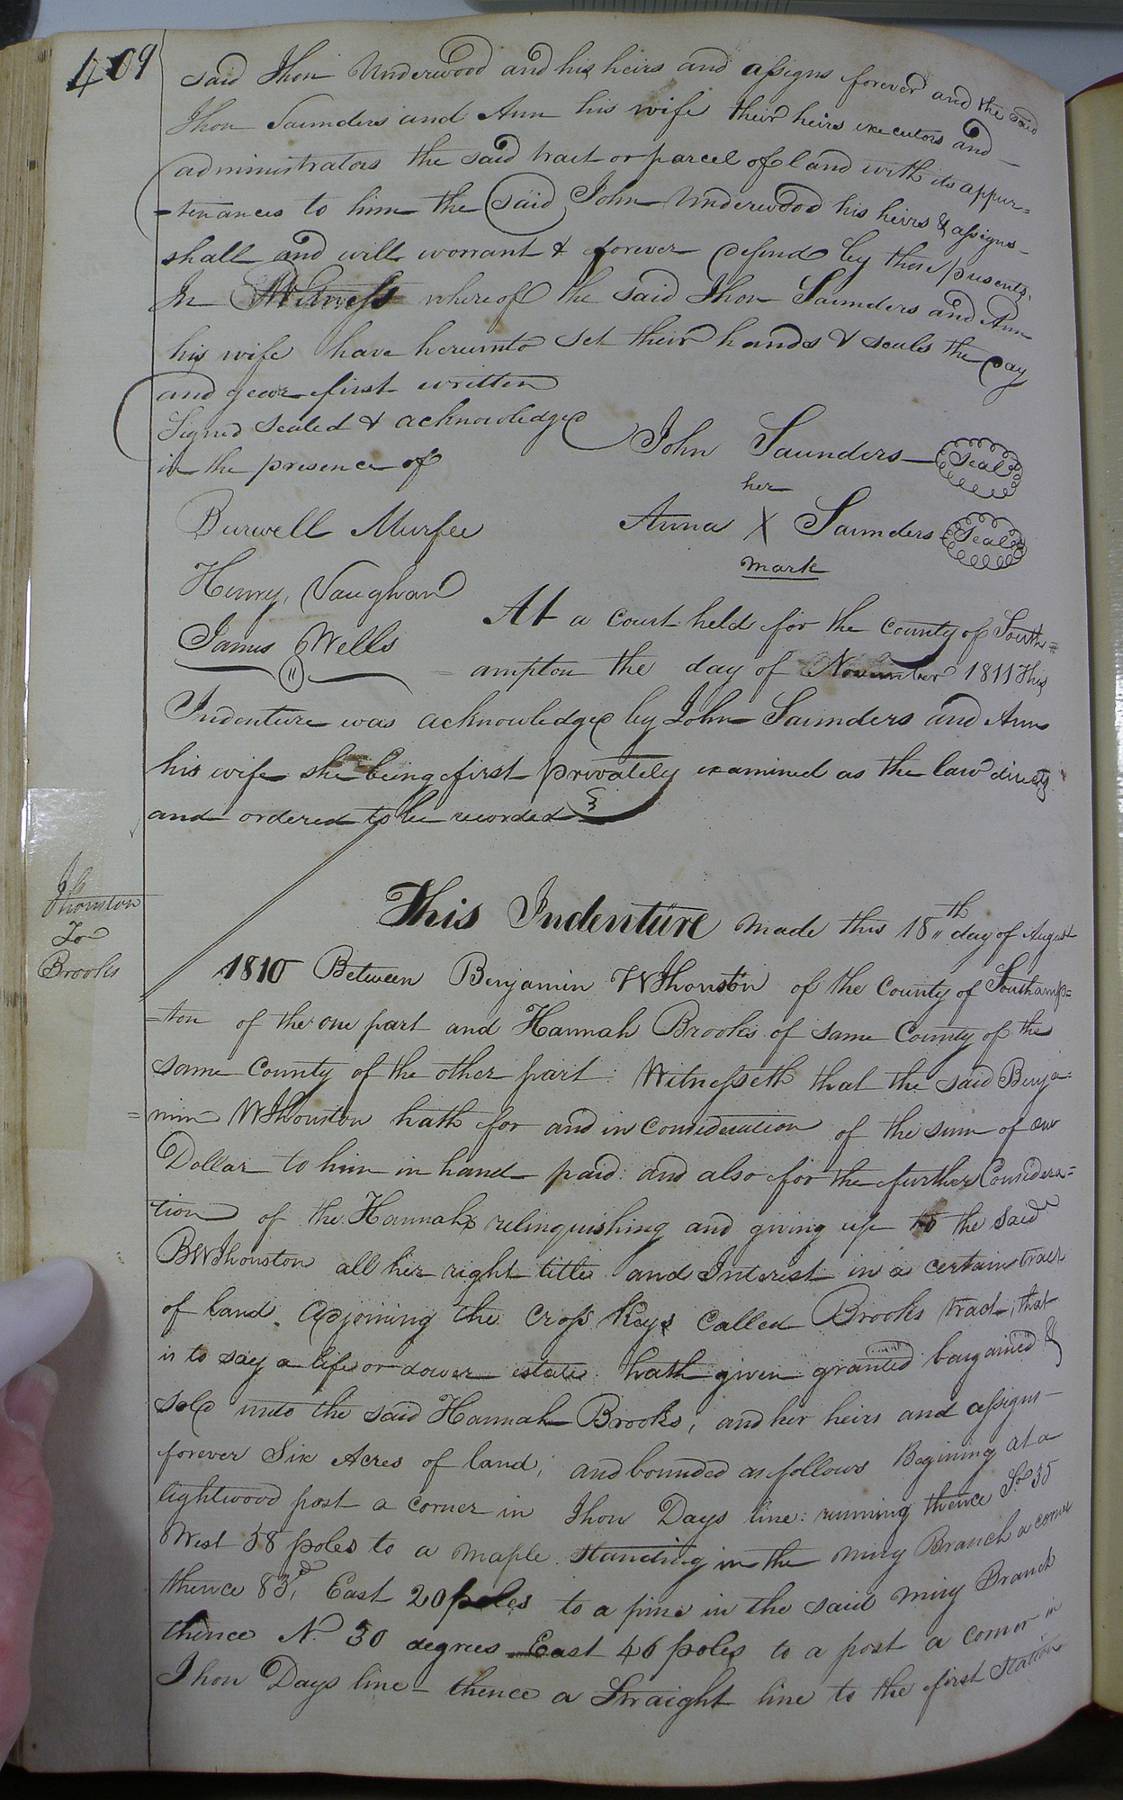 409
said Jhon Underwood and his heirs and assigns forever and the said
Jhon Saunders and Ann his wife their heirs executors and
administrators the said tract or parcel of land with its appur=
=tenances to him the said John Underwood his heirs & assigns
shall and will worrant & forever defend by these presents
In Witness whereof the said Jhon Saunders and Ann
his wife have hereunto set their hands & seals the day
and year first written
Signed Sealed & acknowledged
in the presence of
John Saunders Seal
her
Anna X Saunders Seal
mark
Burwell Murfee
Henry Vaughan
James Wells
At a court held for the county of South=
=ampton the day of November 1811 This
Indenture was acknowledged by John Saunders and Ann
his wife she being first privately examined as the law directs
and ordered to be recorded
Jhonston
To
Brooks
This Indenture made this 18th day of August
1810 Between Benjamin W Jhonston of the County of Southamp=
=ton of the one part and Hannah Brooks of same County of the
same County of the other part: Witnesseth that the said Benja=
=min W Jhonston hath for and in consideration of the sum of one
Dollar to him in hand paid: and also for the further Considera=
tion of the Hannahs relinquishing and giving up to the said
BW Jhonston all her right title and Interest in a certain tract
of land. adjoining the Cross Keys Called Brooks tract, that
is to say a life or dower estate hath given granted bargained &
sold unto the said Hannah Brooks; and her heirs and assigns
forever Six Acres of land; and bounded as follows Begining at a
lightwood post a corner in Jhon Days line: running thence So 55
West 58 poles to a maple standing in the miry Branch a corner
thence 83d East 20 poles to a pine in the said miry Branch
thence N. 30 degrees East 46 poles to a post a cornor in
Jhon Days line - thence a Straight line to the first Station